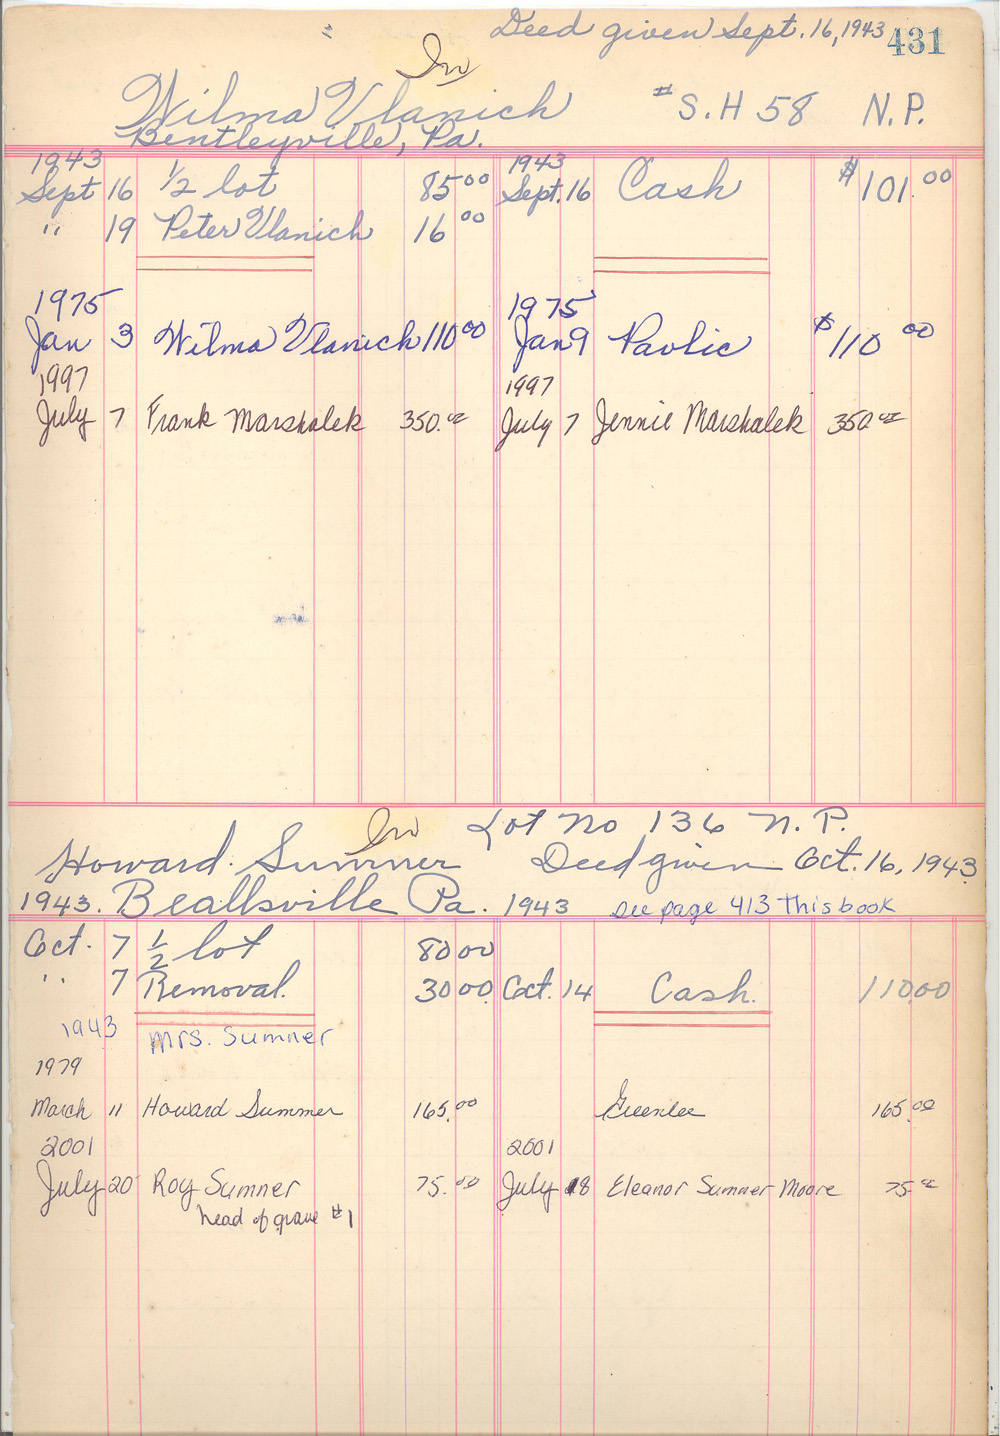 Deed given Sept. 16, 1943 431
In
Wilma Vlanich # S. H 58 N. P.
Bentleyville, Pa.
1943 1943
Sept 16 1/2 lot 85 00 Sept. 16 Cash $ 101. 00
" 19 Peter Vlanich 16 00
1975 1975
Jan 3 Wilma Vlanich 110 00 Jan 9 Pavlic $ 110 00
1997 1997
July 7 Frank Marshalek 350. 00 July 7 Jennie Marshalek 350. 00
In Lot No 136 N. P.
Howard. Sumner Deed given Oct. 16, 1943
1943. Beallsville Pa. 1943 see page 413 this book
Oct. 7 1/2 lot 80 00
" 7 Removal. 30 00 Oct. 14 Cash. 110.00
1943 Mrs. Sumner
1979
March 11 Howard Summer 165. 00 Greenlee 165. 00
2001 2001
July 20 Roy Sumner 75. 00 July 18 Eleanor Sumner Moore 75. 00
head of grave #1